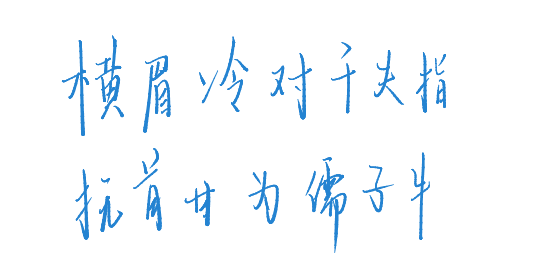 横眉冷对千夫指
首甘为儒子牛